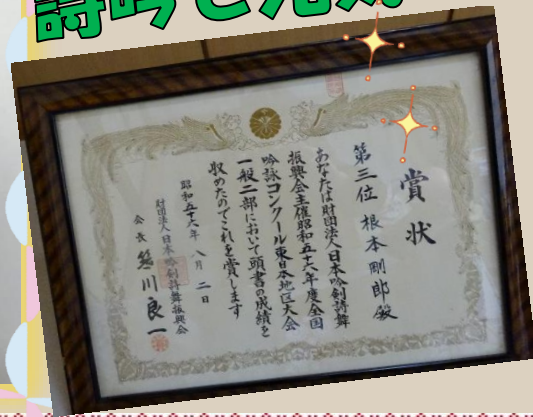 詩吟と
賞状
第三位 根本剛郎殿
あなたは財団法人日本吟剣詩舞
振興会主催昭和五十六年度全国
吟詠コンクール東日本地区大会
一般二部において頭書の成績を
収めたのでこれを賞します
昭和五十六年八月二日
財団法人日本吟剣詩舞振興会
会長 笹川良一